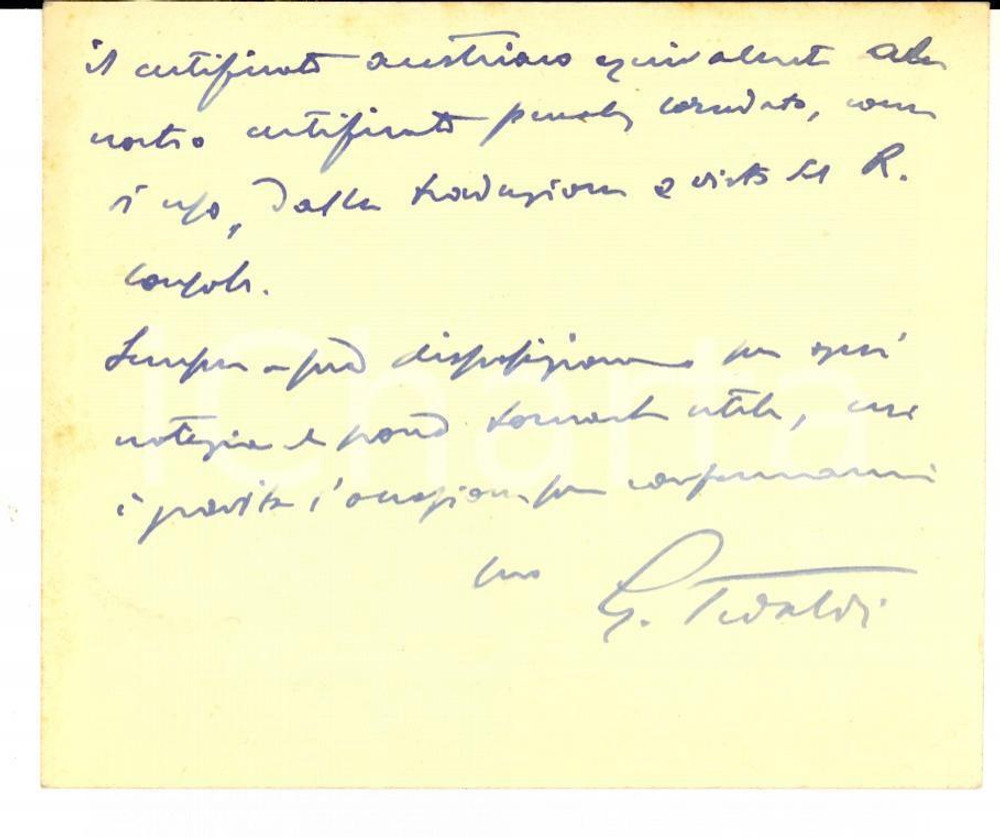 il certificato austriaco equivalente al
nostro certificato penale, corredato, come
d'uso, dalla traduzione e visto del R.
Console.
Sempre a sua disposizione per ogni
notizia le possa tornarle utile, mi
è gradita l'occasione per confermarmi
suo
G. Tedaldi
IChorta